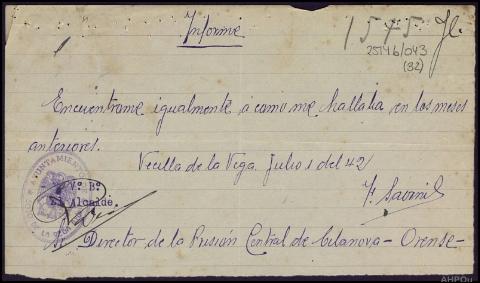 Informe
1575 Jl.
25146/043
(32)
Encuéntrome igualmente a como me hallaba en los meses
anteriores.
Vecilla de la Vega. Julio 1 del 42
AYUNTAMIENTO
V.º B.º
El Alcalde,
F.
Sr. Director de la Prisión Central de Celanova - Orense -
AHPOu